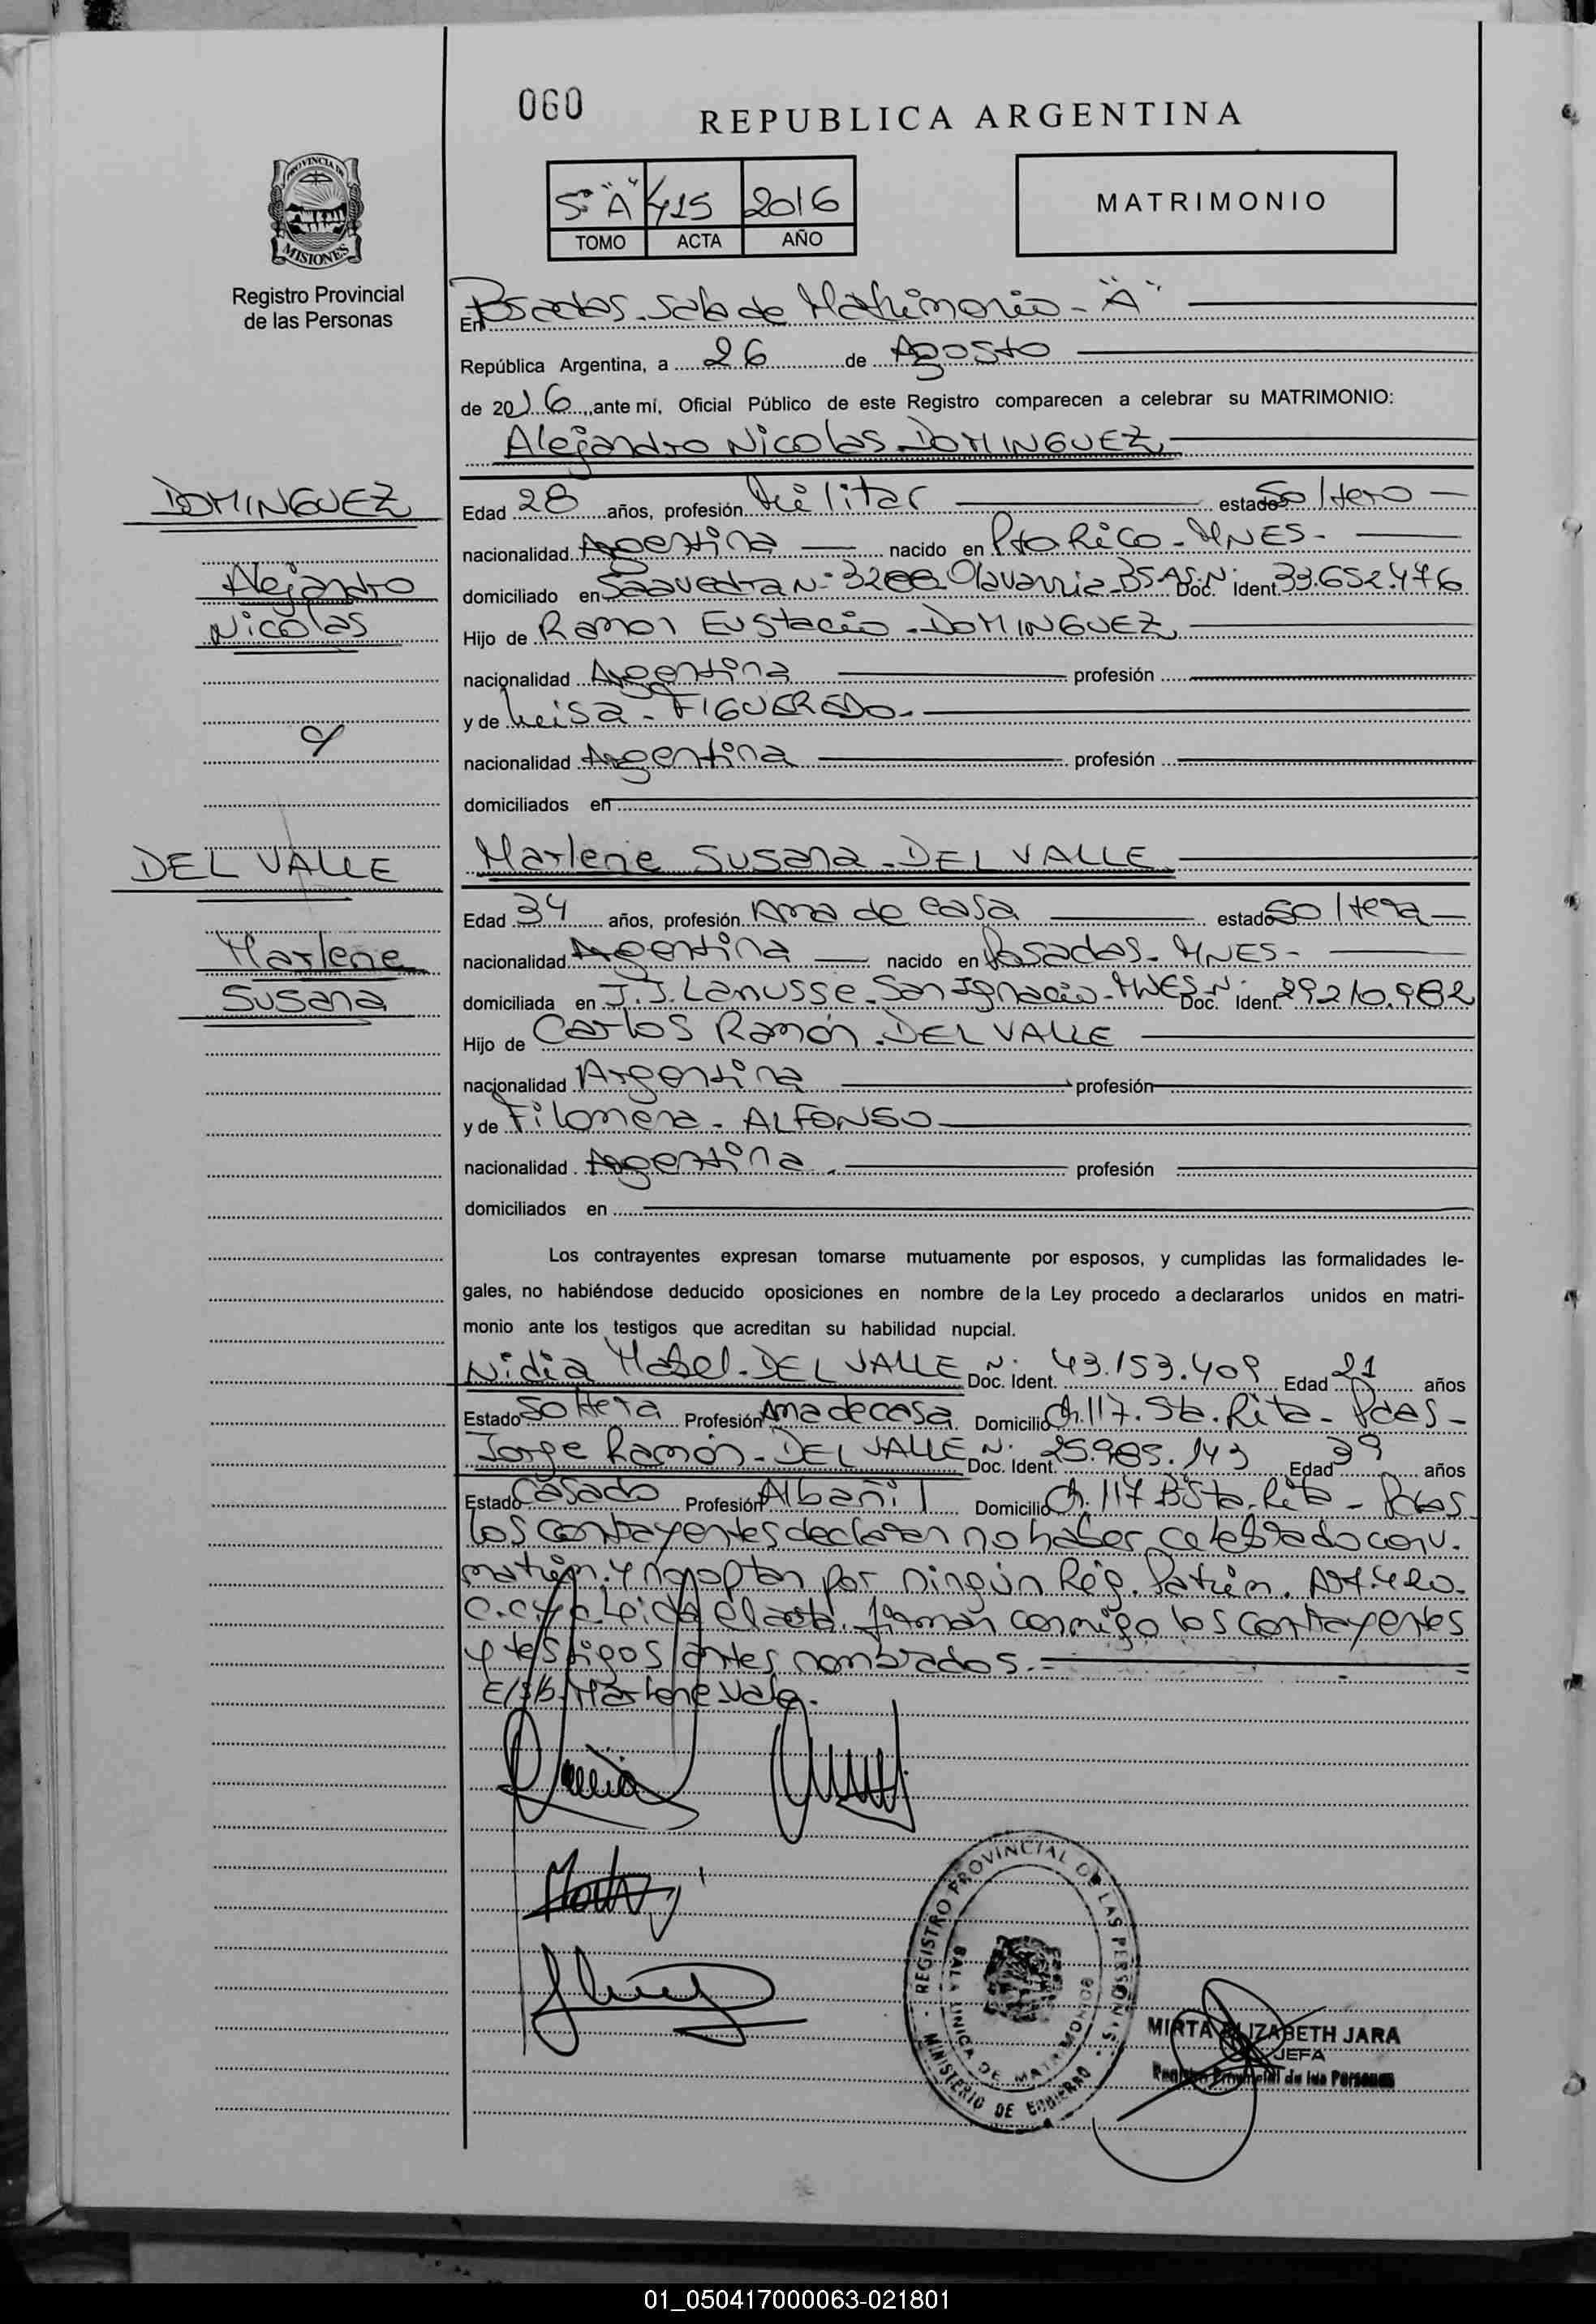 060
REPUBLICA ARGENTINA
PROVINCIA DE
MISIONES
Registro Provincial
de las Personas
5º "A" 415 2016
TOMO ACTA AÑO
MATRIMONIO
En Posadas. Sala de Matrimonio - "A"
República Argentina, a 26 de Agosto
de 2016, ante mí, Oficial Público de este Registro comparecen a celebrar su MATRIMONIO:
Alejandro Nicolas DOMINGUEZ
DOMINGUEZ
Alejandro
Nicolas
Edad 28 años, profesión Militar estado Soltero
nacionalidad Argentina nacido en Pto Rico - MNES -
domiciliado en Saavedra Nº 3200 Olavarria - BS AS Doc. Ident. Nº 33.652.476
Hijo de Ramon Eustacio - DOMINGUEZ
nacionalidad Argentina profesión
y de Luisa - FIGUEREDO -
nacionalidad Argentina profesión
domiciliados en
DEL VALLE
Marlene
Susana
Marlene Susana - DEL VALLE
Edad 34 años, profesión Ama de casa estado Soltera
nacionalidad Argentina nacido en Posadas - MNES -
domiciliada en J.J. Lanusse - San Ignacio - MNES Doc. Ident. Nº 29.210.982
Hijo de Carlos Ramón - DEL VALLE
nacionalidad Argentina profesión
y de Filomena - ALFONSO
nacionalidad Argentina profesión
domiciliados en
Los contrayentes expresan tomarse mutuamente por esposos, y cumplidas las formalidades le-
gales, no habiéndose deducido oposiciones en nombre de la Ley procedo a declararlos unidos en matri-
monio ante los testigos que acreditan su habilidad nupcial.
Nidia Mabel - DEL VALLE Doc. Ident. Nº 43.153.409 Edad 21 años
Estado Soltera Profesión Ama de casa Domicilio Ch. 117. Sta. Rita - Pdas -
Jorge Ramón - DEL VALLE Doc. Ident. Nº 25.985.143 Edad 39 años
Estado Casado Profesión Albañil Domicilio Ch. 117 Bº Sta. Rita - Pdas
Los contrayentes declaran no haber celebrado conv.
matrim. y no optan por ningún Rég. Patrim. Art. 420.
C.C. y C. Leída el acta, firman conmigo los contrayentes
y testigos antes nombrados. -
E/sb. Marlene Vale -
REGISTRO PROVINCIAL DE LAS PERSONAS
SALA UNICA DE MATRIMONIOS
MINISTERIO DE GOBIERNO
MIRTA ELIZABETH JARA
JEFA
Registro Provincial de las Personas
01_050417000063-021801